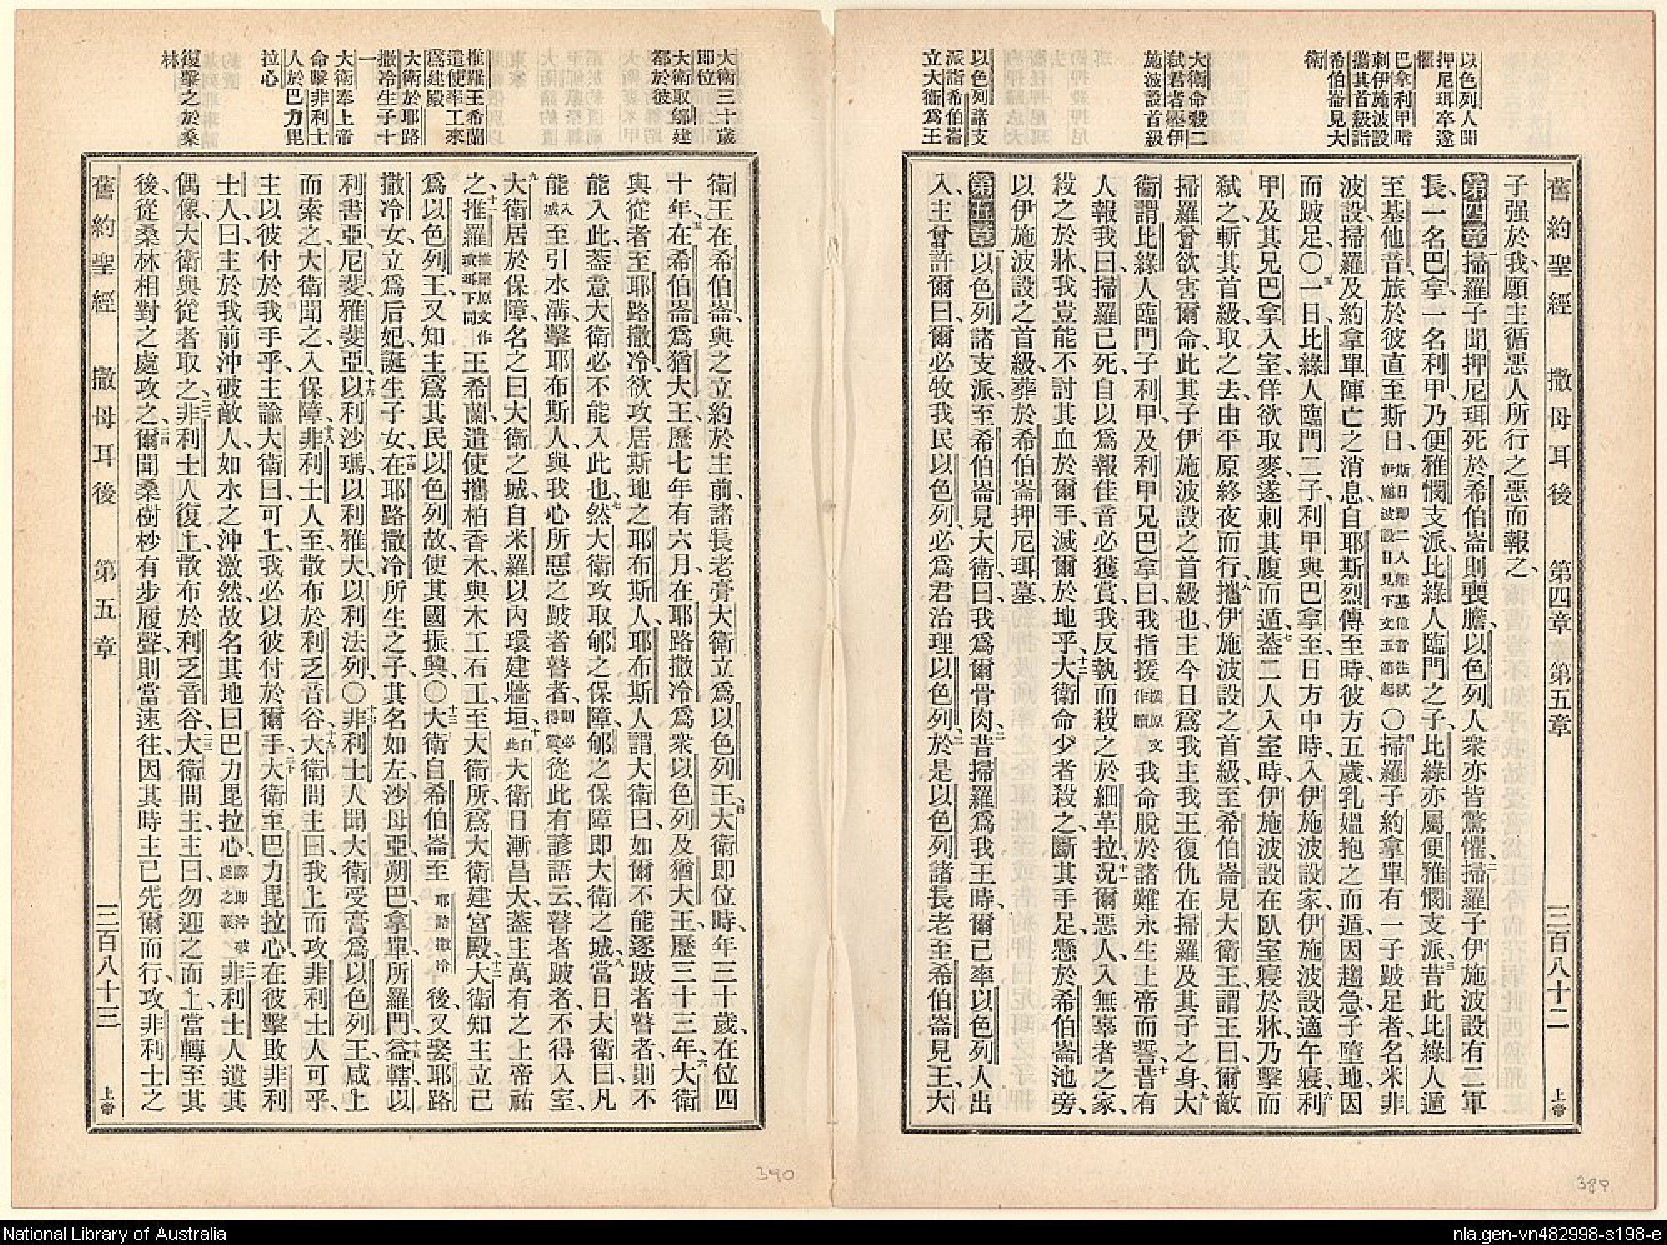 以色列人聞
押尼珥卒遂
懼
巴拿利甲暗
刺伊施波設
攜其首級詣
希伯崙見大
衛
大衛命殺二
弒君者瘞伊
施波設首級
以色列諸支
派詣希伯崙
立大衛為王
舊約聖經 撒母耳後 第四章 第五章 三百八十二 上帝
子强於我、願主循惡人所行之惡而報之、
第四章掃羅子聞押尼珥死於希伯崙、則喪膽、以色列人衆亦皆驚懼、掃羅子伊施波設有二軍
長、一名巴拿、一名利甲、乃便雅憫支派、比綠人臨門之子、比綠亦屬便雅憫支派、昔此比綠人遁
至基他音、旅於彼、直至斯日、斯日即二人離基他音往弒伊施波設日見下文五節起〇掃羅子約拿單有一子跛足者、名米非
波設、掃羅及約拿單陣亡之消息、自耶斯烈傳至時、彼方五歲、乳媼抱之而遁、因趨急、子墮地、因
而跛足、〇一日、比綠人臨門二子、利甲與巴拿、至日方中時、入伊施波設家、伊施波設適午寢、利
甲及其兄巴拿入室、佯欲取麥、遂刺其腹而遁、蓋二人入室時、伊施波設在臥室寢於牀、乃擊而
弒之、斬其首級、取之去、由平原終夜而行、攜伊施波設之首級、至希伯崙見大衛王、謂王曰、爾敵
掃羅曾欲害爾命、此其子伊施波設之首級也、主今日為我主我王復仇、在掃羅及其子之身、大
衛謂比綠人臨門子利甲、及利甲兄巴拿曰、我指援援原文作贖我命脫於諸難永生上帝而誓、昔有
人報我曰、掃羅已死、自以為報佳音、必獲賞、我反執而殺之於細革拉、況爾惡人、入無辜者之家、
殺之於牀、我豈能不討其血於爾手、滅爾於地乎、大衛命少者殺之、斷其手足、懸於希伯崙池旁、
以伊施波設之首級、葬於希伯崙押尼珥墓、
第五章以色列諸支派、至希伯崙見大衛曰、我為爾骨肉、昔掃羅為我王時、爾已率以色列人出
入、主曾許爾曰、爾必牧我民以色列、必為君治理以色列、於是以色列諸長老至希伯崙見王、大
大衛三十歲
即位
大衛取郇建
都於彼
推羅王希蘭
遣使率工來
為建殿
大衛於耶路
撒冷生子十
一
大衛奉上帝
命擊非利士
人於巴力毘
拉心
復擊之於桑
林
衛王在希伯崙與之立約於主前、諸長老膏大衛立為以色列王、大衛即位時、年三十歲、在位四
十年、在希伯崙為猶大王、歷七年有六月、在耶路撒冷為衆以色列及猶大王、歷三十三年、大衛
與從者至耶路撒冷、欲攻居斯地之耶布斯人、耶布斯人謂大衛曰、如爾不能逐跛者瞽者、則不
能入此、蓋意大衛必不能入此也、然大衛攻取郇之保障、郇之保障即大衛之城、當日大衛曰、凡
能入城至引水溝、擊耶布斯人、與我心所惡之跛者瞽者、則必得賞從此有諺語云、瞽者跛者、不得入室、
大衛居於保障、名之曰大衛之城、自米羅以內、環建牆垣、自此大衛日漸昌大、蓋主萬有之上帝祐
之、推羅推羅原文作瑣珥下同王希蘭、遣使攜柏香木與木工石工、至大衛所、為大衛建宮殿、大衛知主立己
為以色列王、又知主為其民以色列故、使其國振興、〇大衛自希伯崙至耶路撒冷後、又娶耶路
撒冷女、立為后妃、誕生子女、在耶路撒冷所生之子、其名如左、沙母亞、朔巴、拿單、所羅門、益轄、以
利書亞、尼斐、雅斐亞、以利沙瑪、以利雅大、以利法列、〇非利士人聞大衛受膏為以色列王、咸上
而索之、大衛聞之、入保障、非利士人至、散布於利乏音谷、大衛問主曰、我上而攻非利士人可乎、
主以彼付於我手乎、主諭大衛曰、可上、我必以彼付於爾手、大衛至巴力毘拉心、在彼擊敗非利
士人、曰、主於我前沖破敵人、如水之沖激然、故名其地曰巴力毘拉心、譯即沖破處之義非利士人遺其
偶像、大衛與從者取之、非利士人復上、散布於利乏音谷、大衛問主、主曰、勿迎之而上、當轉至其
後、從桑林相對之處攻之、爾聞桑樹杪有步履聲、則當速往、因其時主已先爾而行、攻非利士之
舊約聖經 撒母耳後 第五章 三百八十三 上帝
390
389
National Library of Australia
nla.gen-vn482998-s198-e